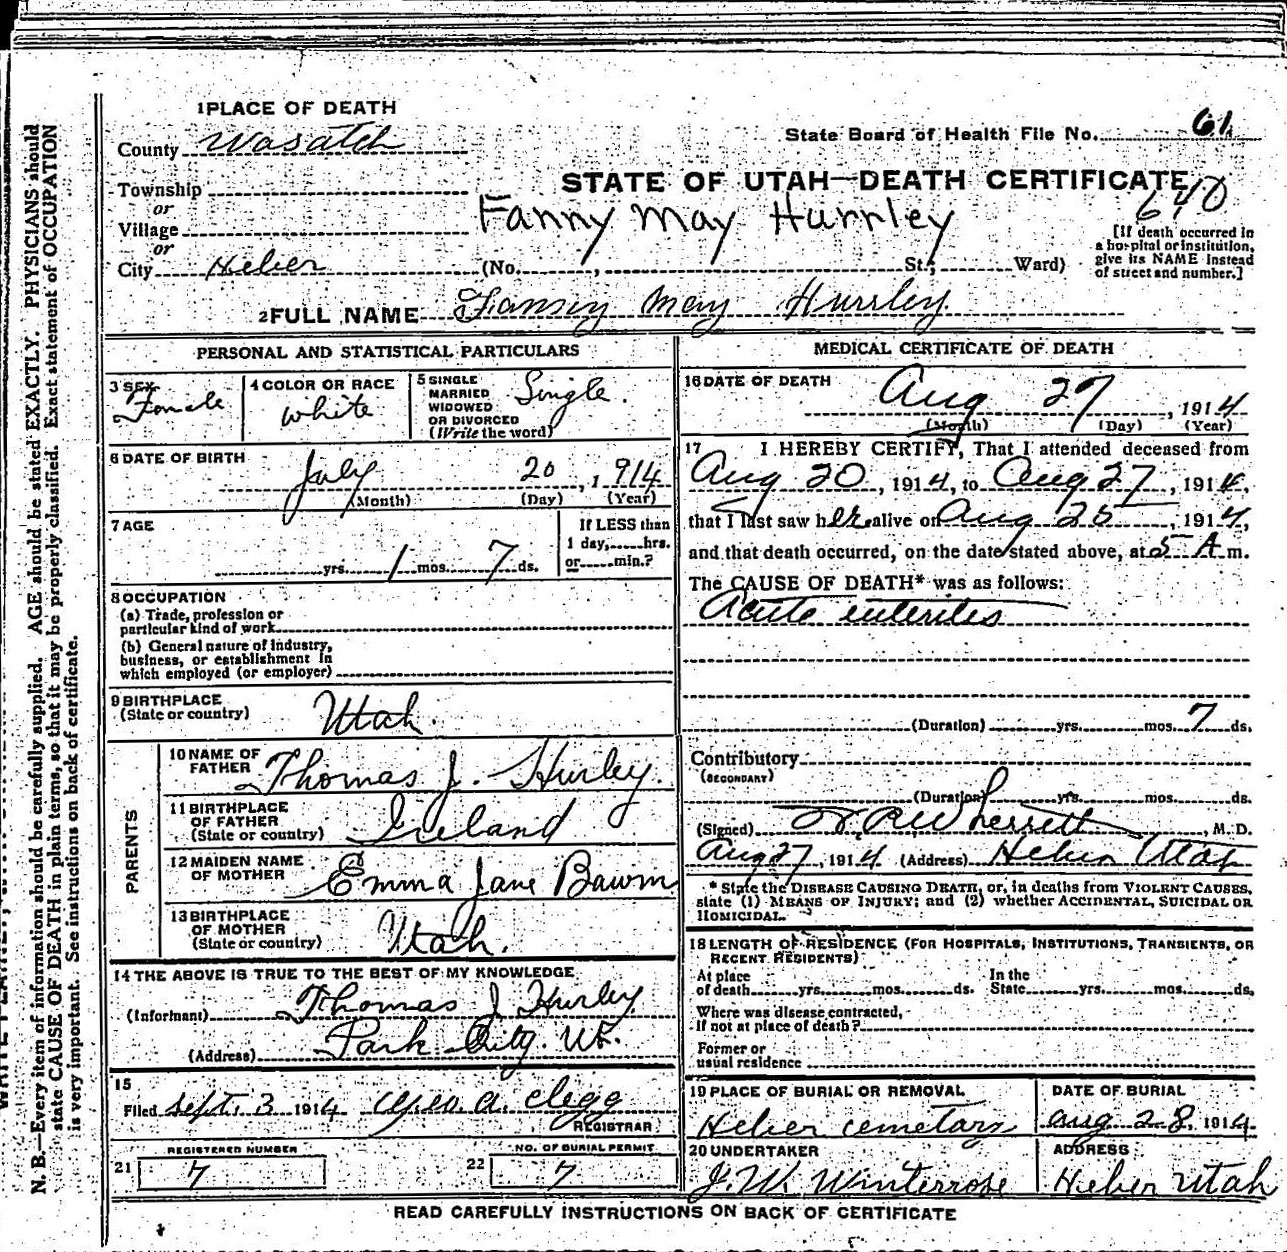 1 PLACE OF DEATH
County Wasatch
State Board of Health File No. 61
Township
or
Village
or
City Heber
STATE OF UTAH—DEATH CERTIFICATE
640
Fanny May Hurrley
(No. , St.; Ward)
[If death occurred in
a hospital or institution,
give its NAME instead
of street and number.]
2 FULL NAME Fanny May Hurrley
PERSONAL AND STATISTICAL PARTICULARS
3 SEX
Female
4 COLOR OR RACE
White
5 SINGLE
MARRIED
WIDOWED
OR DIVORCED
(Write the word)
Single.
6 DATE OF BIRTH
July 20, 1914
(Month) (Day) (Year)
7 AGE
yrs. 1 mos. 7 ds.
If LESS than
1 day, hrs.
or min.?
8 OCCUPATION
(a) Trade, profession or
particular kind of work
(b) General nature of industry,
business, or establishment in
which employed (or employer)
9 BIRTHPLACE
(State or country)
Utah.
PARENTS
10 NAME OF
FATHER
Thomas J. Hurley.
11 BIRTHPLACE
OF FATHER
(State or country)
Ireland
12 MAIDEN NAME
OF MOTHER
Emma Jane Bawm
13 BIRTHPLACE
OF MOTHER
(State or country)
Utah.
14 THE ABOVE IS TRUE TO THE BEST OF MY KNOWLEDGE
(Informant) Thomas J Hurley.
(Address) Park City. Ut.
15
Filed Sept. 3 1914 Geo. A. Clegg
REGISTRAR
REGISTERED NUMBER
21 7
NO. OF BURIAL PERMIT
22 7
MEDICAL CERTIFICATE OF DEATH
16 DATE OF DEATH
Aug 27, 1914
(Month) (Day) (Year)
17 I HEREBY CERTIFY, That I attended deceased from
Aug 20, 1914, to Aug 27, 1914,
that I last saw her alive on Aug 25, 1914,
and that death occurred, on the date stated above, at 5 A m.
The CAUSE OF DEATH* was as follows:
Acute enterites
(Duration) yrs. mos. 7 ds.
Contributory
(SECONDARY)
(Duration) yrs. mos. ds.
(Signed) Wherrett, M. D.
Aug 27, 1914 (Address) Heber Utah
* State the DISEASE CAUSING DEATH, or, in deaths from VIOLENT CAUSES,
state (1) MEANS OF INJURY; and (2) whether ACCIDENTAL, SUICIDAL OR
HOMICIDAL.
18 LENGTH OF RESIDENCE (FOR HOSPITALS, INSTITUTIONS, TRANSIENTS, OR
RECENT RESIDENTS)
At place
of death yrs. mos. ds.
In the
State yrs. mos. ds.
Where was disease contracted,
if not at place of death?
Former or
usual residence
19 PLACE OF BURIAL OR REMOVAL
Heber cemetary
DATE OF BURIAL
Aug 28, 1914
20 UNDERTAKER
J. W. Winterrose
ADDRESS
Heber Utah
READ CAREFULLY INSTRUCTIONS ON BACK OF CERTIFICATE
N. B.—Every item of information should be carefully supplied. AGE should be stated EXACTLY. PHYSICIANS should
state CAUSE OF DEATH in plain terms, so that it may be properly classified. Exact statement of OCCUPATION
is very important. See instructions on back of certificate.